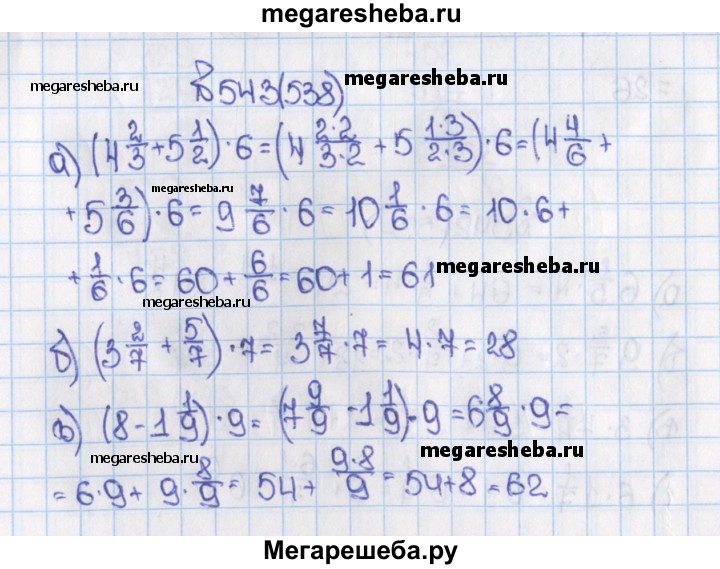 megaresheba.ru
№ 543(538)
megaresheba.ru
megaresheba.ru
а) (4 2/3 + 5 1/2) · 6 = (4 2·2/3·2 + 5 1·3/2·3) · 6 = (4 4/6 +
megaresheba.ru
+ 5 3/6) · 6 = 9 7/6 · 6 = 10 1/6 · 6 = 10 · 6 +
+ 1/6 · 6 = 60 + 6/6 = 60 + 1 = 61
megaresheba.ru
megaresheba.ru
б) (3 2/7 + 5/7) · 7 = 3 7/7 · 7 = 4 · 7 = 28
в) (8 - 1 1/9) · 9 = (7 9/9 - 1 1/9) · 9 = 6 8/9 · 9 =
megaresheba.ru
megaresheba.ru
= 6 · 9 + 9 · 8/9 = 54 + 9·8/9 = 54 + 8 = 62
Мегарешеба.ру